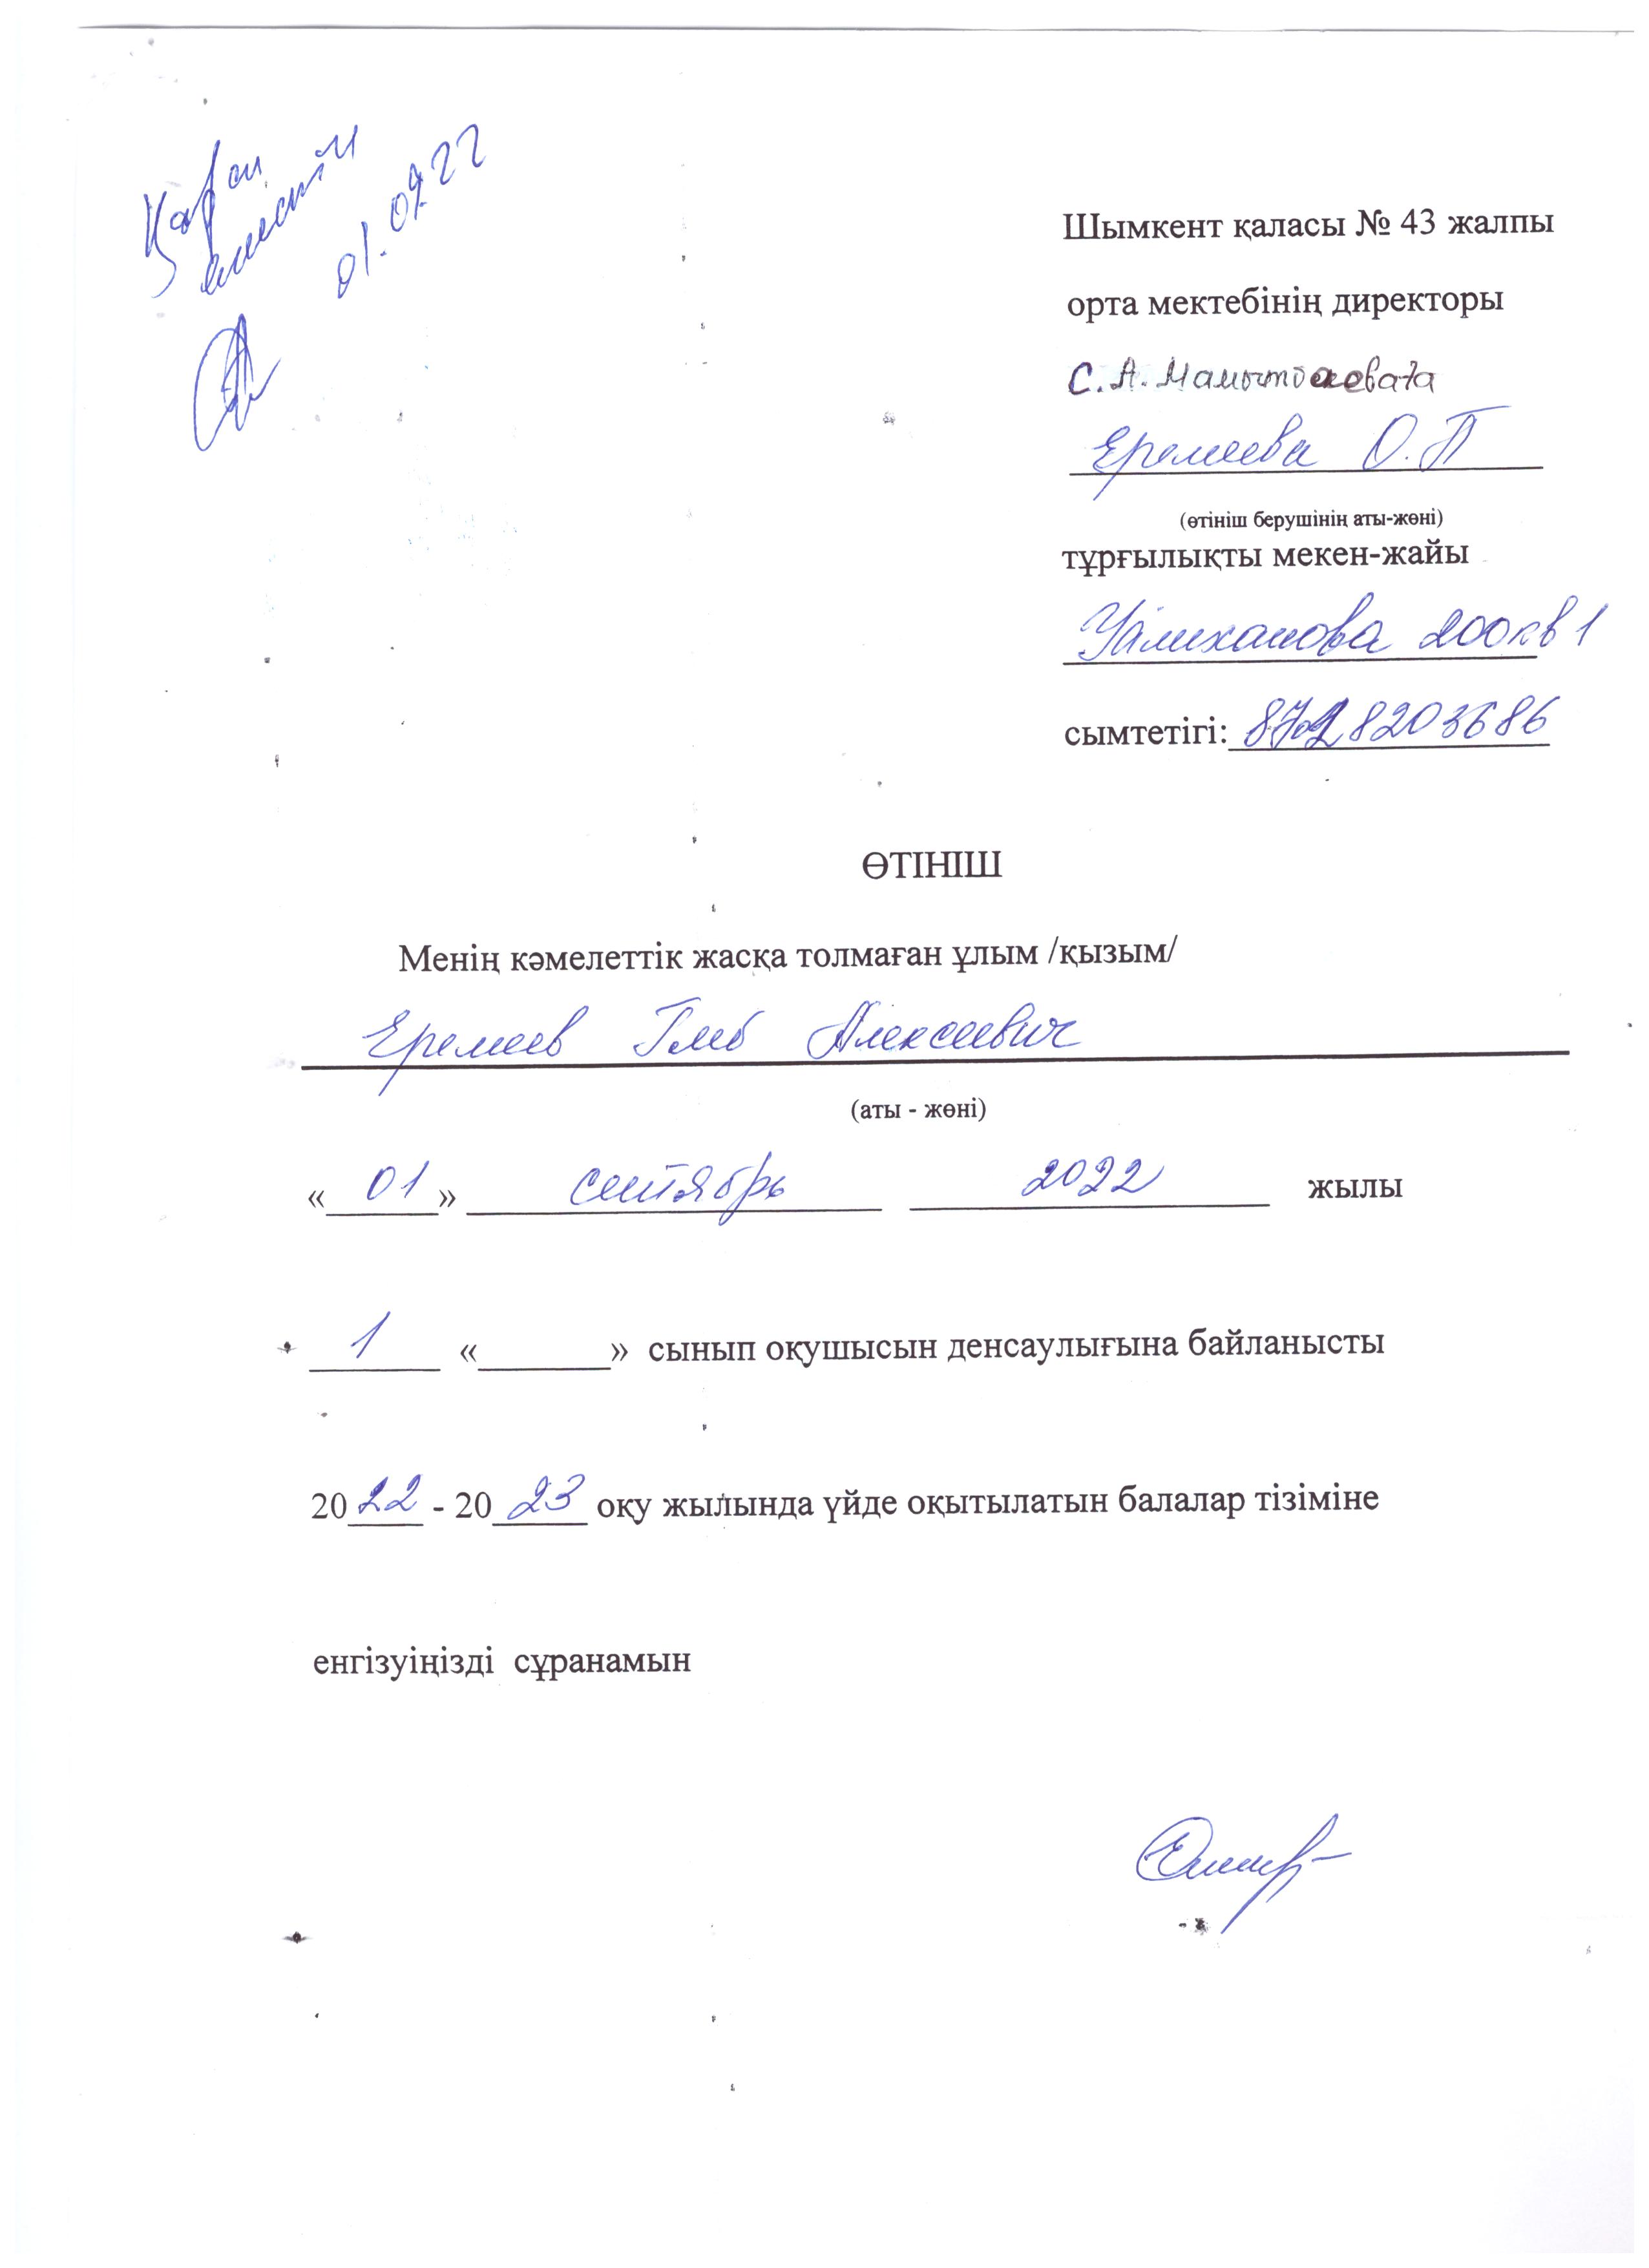 01.09.22
Шымкент қаласы № 43 жалпы
орта мектебінің директоры
С.А. Мамытбаеваға
Еремеева О.П
(өтініш берушінің аты-жөні)
тұрғылықты мекен-жайы
Уалиханова 200кв 1
сымтетігі: 8203686
ӨТІНІШ
Менің кәмелеттік жасқа толмаған ұлым /қызым/
Еремеев Глеб Алексеевич
(аты - жөні)
« 01 » сентябрь 2022 жылы
1 «______» сынып оқушысын денсаулығына байланысты
2022 - 2023 оқу жылында үйде оқытылатын балалар тізіміне
енгізуіңізді сұранамын